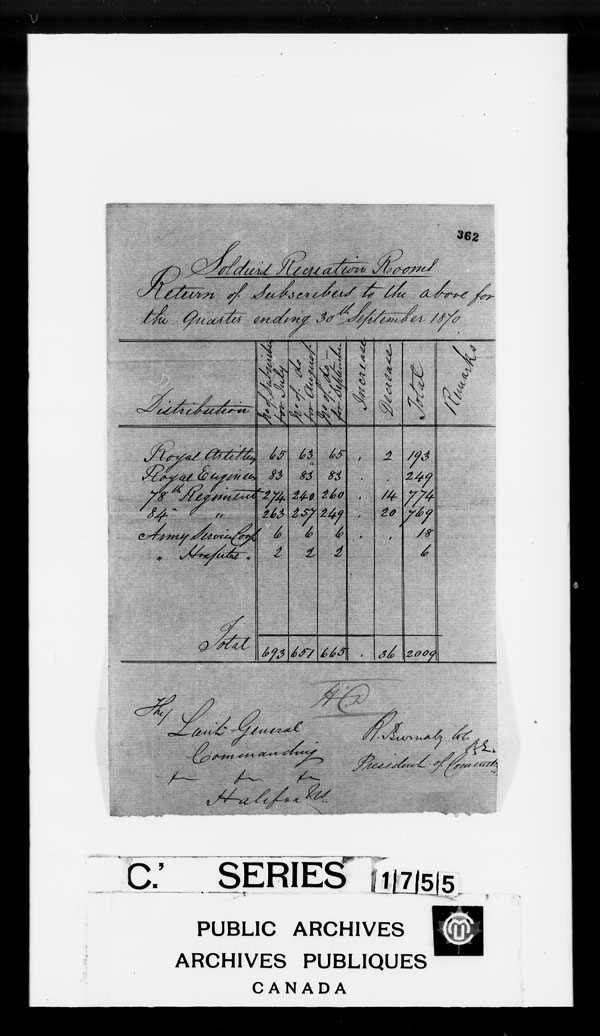 362
Soldiers Recreation Rooms
Return of Subscribers to the above for
the Quarter ending 30th September 1870
Distribution | No of Subscribers for July | No of do for August | No of do for September | Increase | Decrease | Total | Remarks
Royal Artillery 65 63 65 . 2 193
Royal Engineers 83 83 83 . . 249
78th Regiment 274 240 260 . 14 774
84th " 263 257 249 . 20 769
Army Service Corps 6 6 6 . . 18
" Hospital " 2 2 2 6
Total 693 651 665 . 36 2009
HQ
The
Lieut General
Commanding
Halifax NS.
R. Burnaby Col
R.E.
President of Committee
C.' SERIES 1755
PUBLIC ARCHIVES
ARCHIVES PUBLIQUES
CANADA